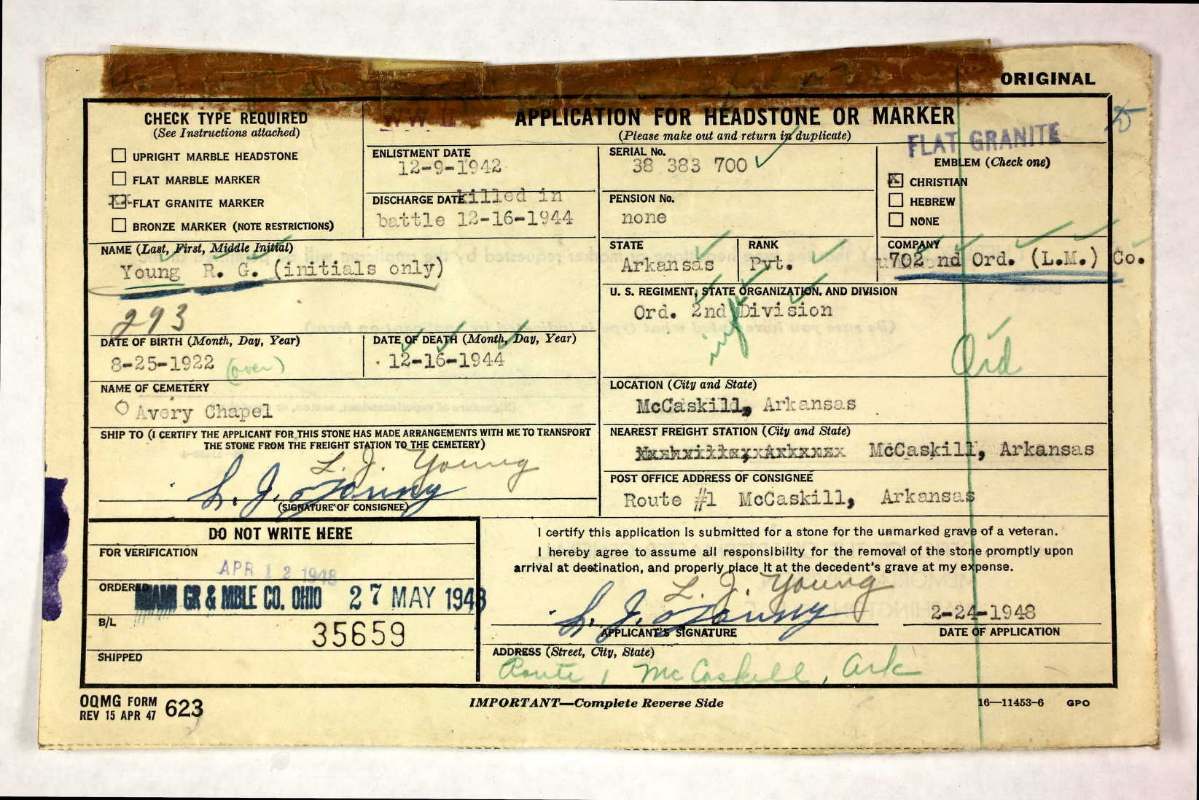 ORIGINAL
CHECK TYPE REQUIRED
(See Instructions attached)
UPRIGHT MARBLE HEADSTONE
FLAT MARBLE MARKER
FLAT GRANITE MARKER
BRONZE MARKER (NOTE RESTRICTIONS)
APPLICATION FOR HEADSTONE OR MARKER
(Please make out and return in duplicate)
FLAT GRANITE
ENLISTMENT DATE
12-9-1942
DISCHARGE DATE killed in
battle 12-16-1944
SERIAL No.
38 383 700
PENSION No.
none
EMBLEM (Check one)
CHRISTIAN
HEBREW
NONE
NAME (Last, First, Middle Initial)
Young R. G. (initials only)
293
STATE
Arkansas
RANK
Pvt.
COMPANY
702 nd Ord. (L.M.) Co.
U. S. REGIMENT, STATE ORGANIZATION, AND DIVISION
Ord. 2nd Division
inf
Ord
DATE OF BIRTH (Month, Day, Year)
8-25-1922 (over)
DATE OF DEATH (Month, Day, Year)
12-16-1944
NAME OF CEMETERY
Avery Chapel
LOCATION (City and State)
McCaskill, Arkansas
SHIP TO (I CERTIFY THE APPLICANT FOR THIS STONE HAS MADE ARRANGEMENTS WITH ME TO TRANSPORT
THE STONE FROM THE FREIGHT STATION TO THE CEMETERY)
L. J. Young
L. J. Young
(SIGNATURE OF CONSIGNEE)
NEAREST FREIGHT STATION (City and State)
McCaskill, Arkansas
POST OFFICE ADDRESS OF CONSIGNEE
Route #1 McCaskill, Arkansas
DO NOT WRITE HERE
FOR VERIFICATION
APR 12 1948
ORDERED
MIAMI GR & MBLE CO. OHIO 27 MAY 1948
B/L
35659
SHIPPED
I certify this application is submitted for a stone for the unmarked grave of a veteran.
I hereby agree to assume all responsibility for the removal of the stone promptly upon
arrival at destination, and properly place it at the decedent's grave at my expense.
L. J. Young
L. J. Young
APPLICANT'S SIGNATURE
2-24-1948
DATE OF APPLICATION
ADDRESS (Street, City, State)
Route 1 McCaskill, Ark
OQMG FORM
REV 15 APR 47 623
IMPORTANT—Complete Reverse Side
16—11453-6 GPO